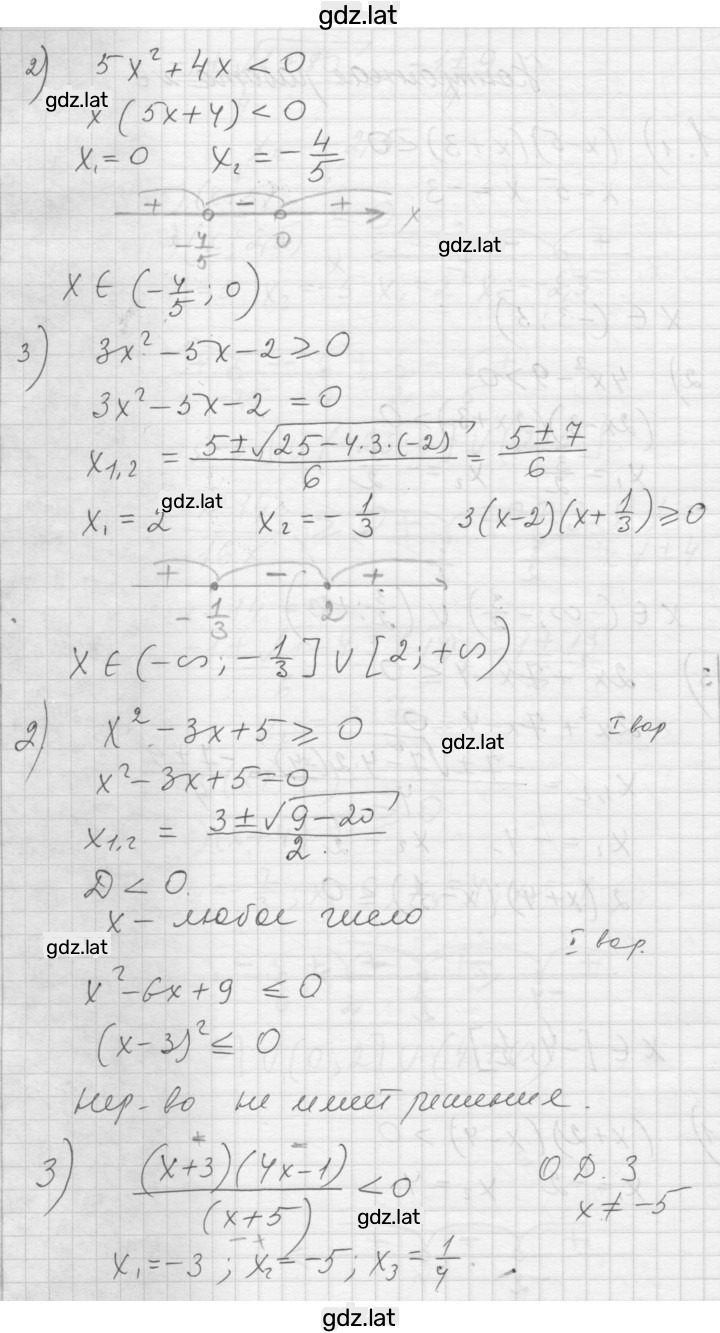 gdz.lat
2) 5x² + 4x < 0
gdz.lat
x (5x+4) < 0
x₁ = 0 x₂ = -4/5
+ - + x
-4/5 0
gdz.lat
x ∈ (-4/5 ; 0)
3) 3x² - 5x - 2 ≥ 0
3x² - 5x - 2 = 0
x₁,₂ = (5 ± √(25 - 4·3·(-2)))/6 = (5 ± 7)/6
gdz.lat
x₁ = 2 x₂ = -1/3 3(x-2)(x+1/3) ≥ 0
+ - +
-1/3 2
x ∈ (-∞; -1/3] ∪ [2; +∞)
2) x² - 3x + 5 ≥ 0 I вар
gdz.lat
x² - 3x + 5 = 0
x₁,₂ = (3 ± √(9-20))/2
Д < 0.
x - любое число
gdz.lat I вар.
x² - 6x + 9 ≤ 0
(x-3)² ≤ 0
Нер-во не имеет решения.
3) (x+3)(4x-1)/(x+5) < 0 О.Д.З
x ≠ -5
gdz.lat
x₁ = -3 ; x₂ = -5; x₃ = 1/4.
gdz.lat